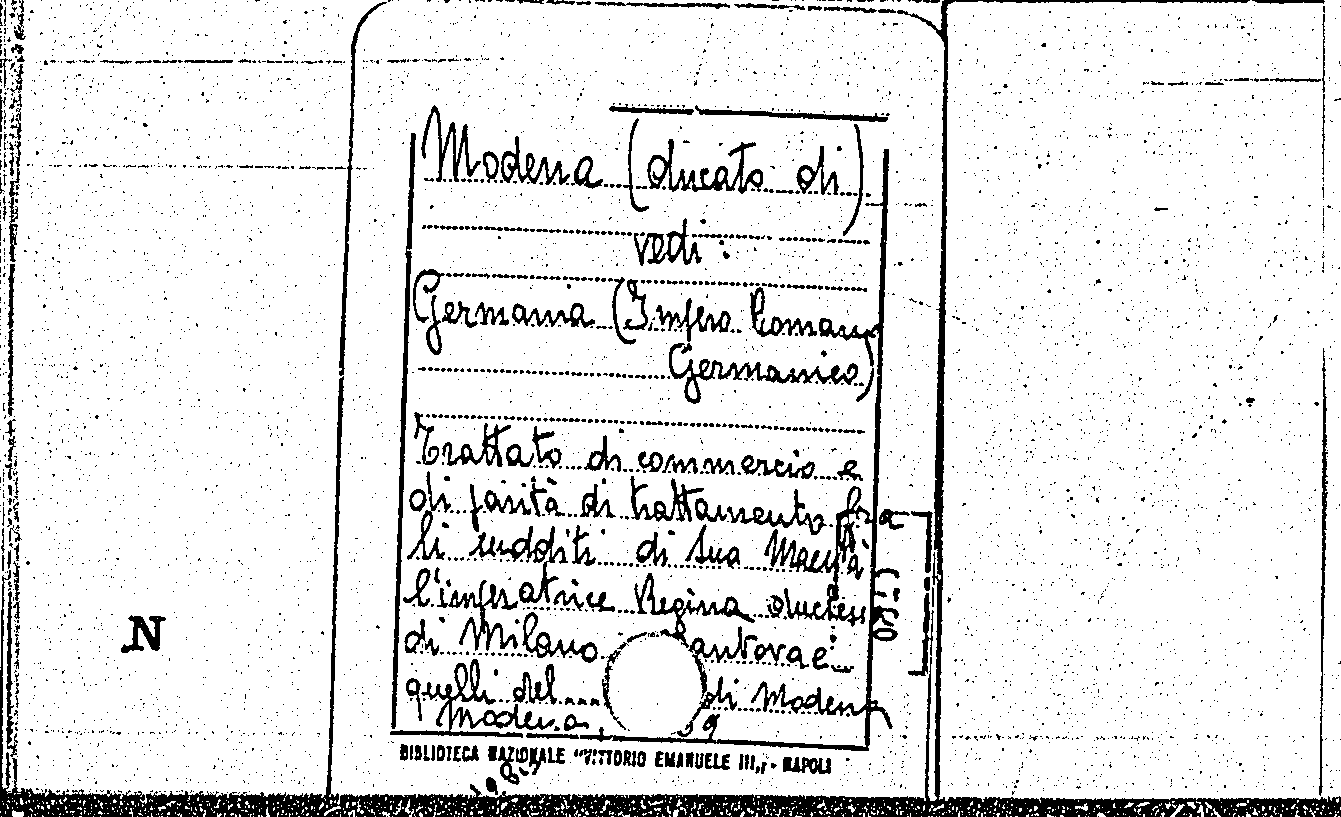 Modena (ducato di)
vedi:
Germania (Impero Romano
Germanico)
Trattato di commercio e
di parità di trattamento fra
li sudditi di Sua Maestà
l'imperatrice Regina duchessa
di Milano antova e
quelli del.... di Modena
Modena, 59
BIBLIOTECA NAZIONALE "VITTORIO EMANUELE III,, - NAPOLI
N